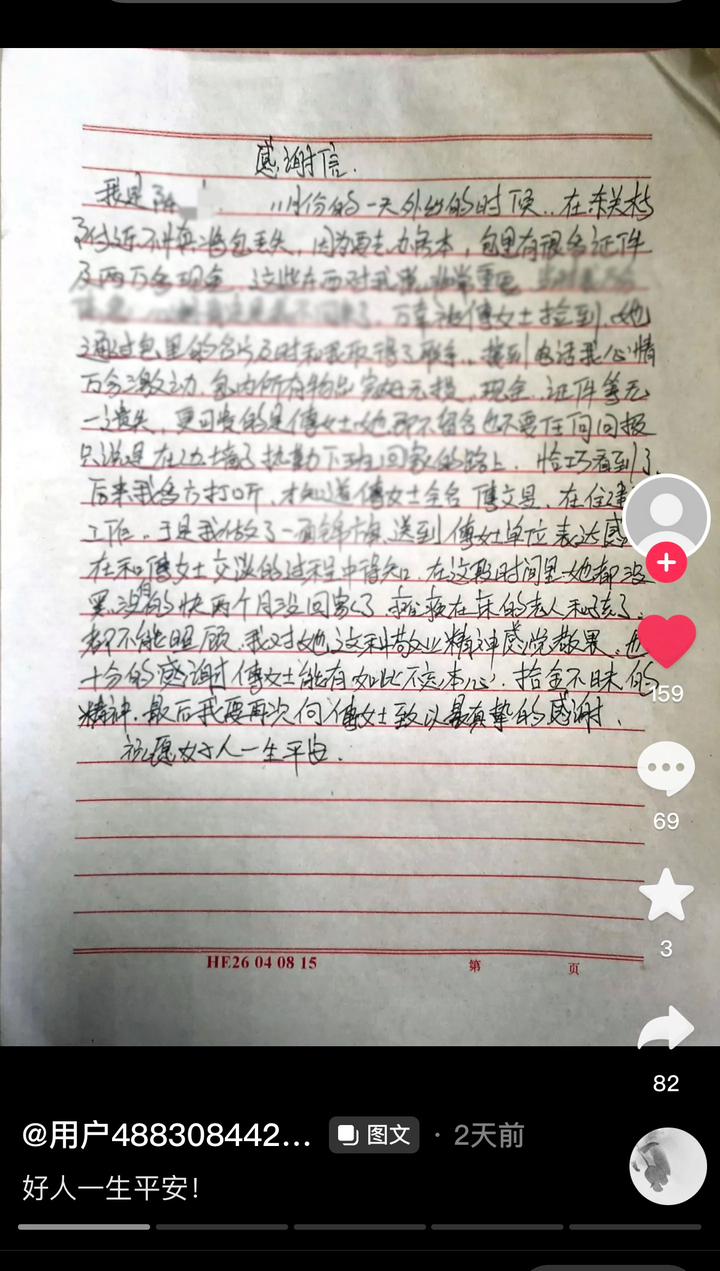 感谢信.
我是
11月份的一天外出的时候..在东关村
附近不慎将包丢失,因为要去办房本,包里有很多证件
及两万多现金 这些东西对我来 非常重要
万幸被傅女士捡到.她
通过包里的名片及时和我取得了联系.接到电话我心情
万分激动.包内所有物品完好无损,现金..证件等无
一遗失,更可贵的是傅女士她即不留名也不要任何回报
只说是在 执勤下班回家的路上.恰巧看到了,
后来我多方打听,才知道傅女士全名 傅文 .在住建
工作.于是我做了一面锦旗,送到傅女士单位表达感
在和傅女士交谈的过程中得知.在这段时间里她都没
黑没白的快两个月没回家了. 在床的老人和孩子.
都不能照顾.我对她这种敬业精神感觉敬畏.也
十分的感谢傅女士能有如此不忘本心.拾金不昧的
精神.最后我要再次向傅女士致以最真挚的感谢.
祝愿好人一生平安.
HE26 04 08 15 第 页
159
69
3
82
@用户488308442... 图文 · 2天前
好人一生平安!